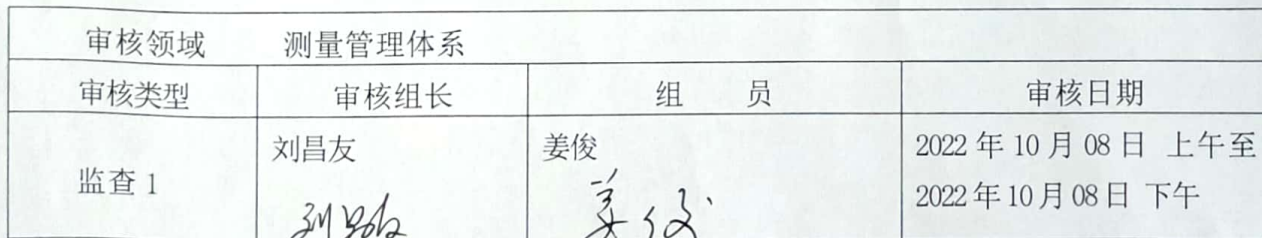 审核领域 测量管理体系
审核类型 审核组长 组 员 审核日期
监查1 刘昌友 姜俊 2022年10月08日 上午至
2022年10月08日 下午
刘昌友 姜俊